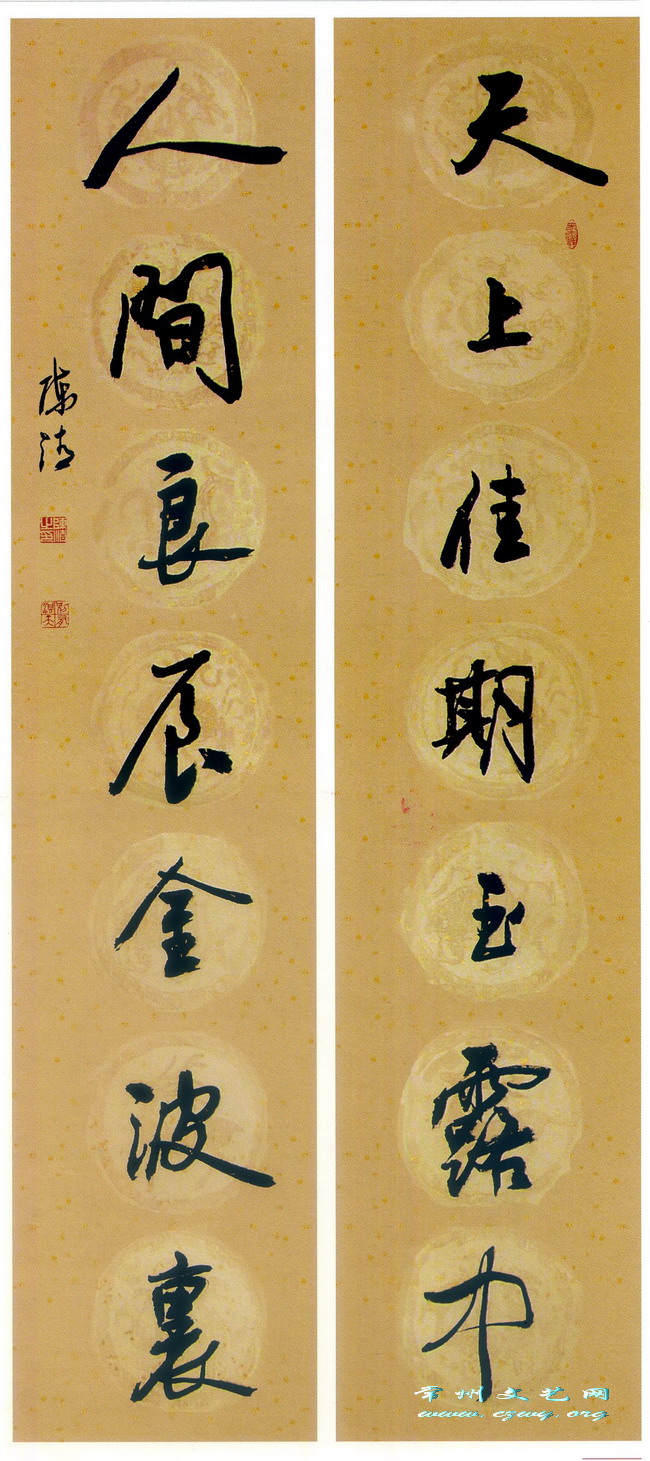 天上佳期玉露中
人間良辰金波裏
陳清
常州文艺网
www.czwy.org